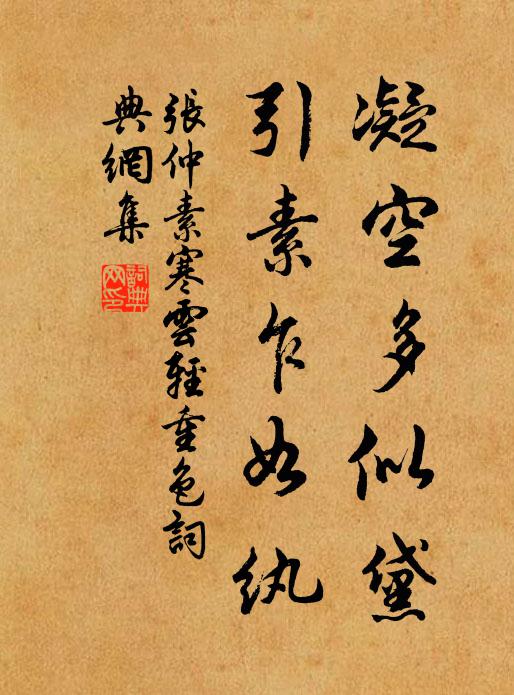 凝空多似黛
引素乍如纨
張仲素寒雲輕重色詞
典網集
詞典
网印